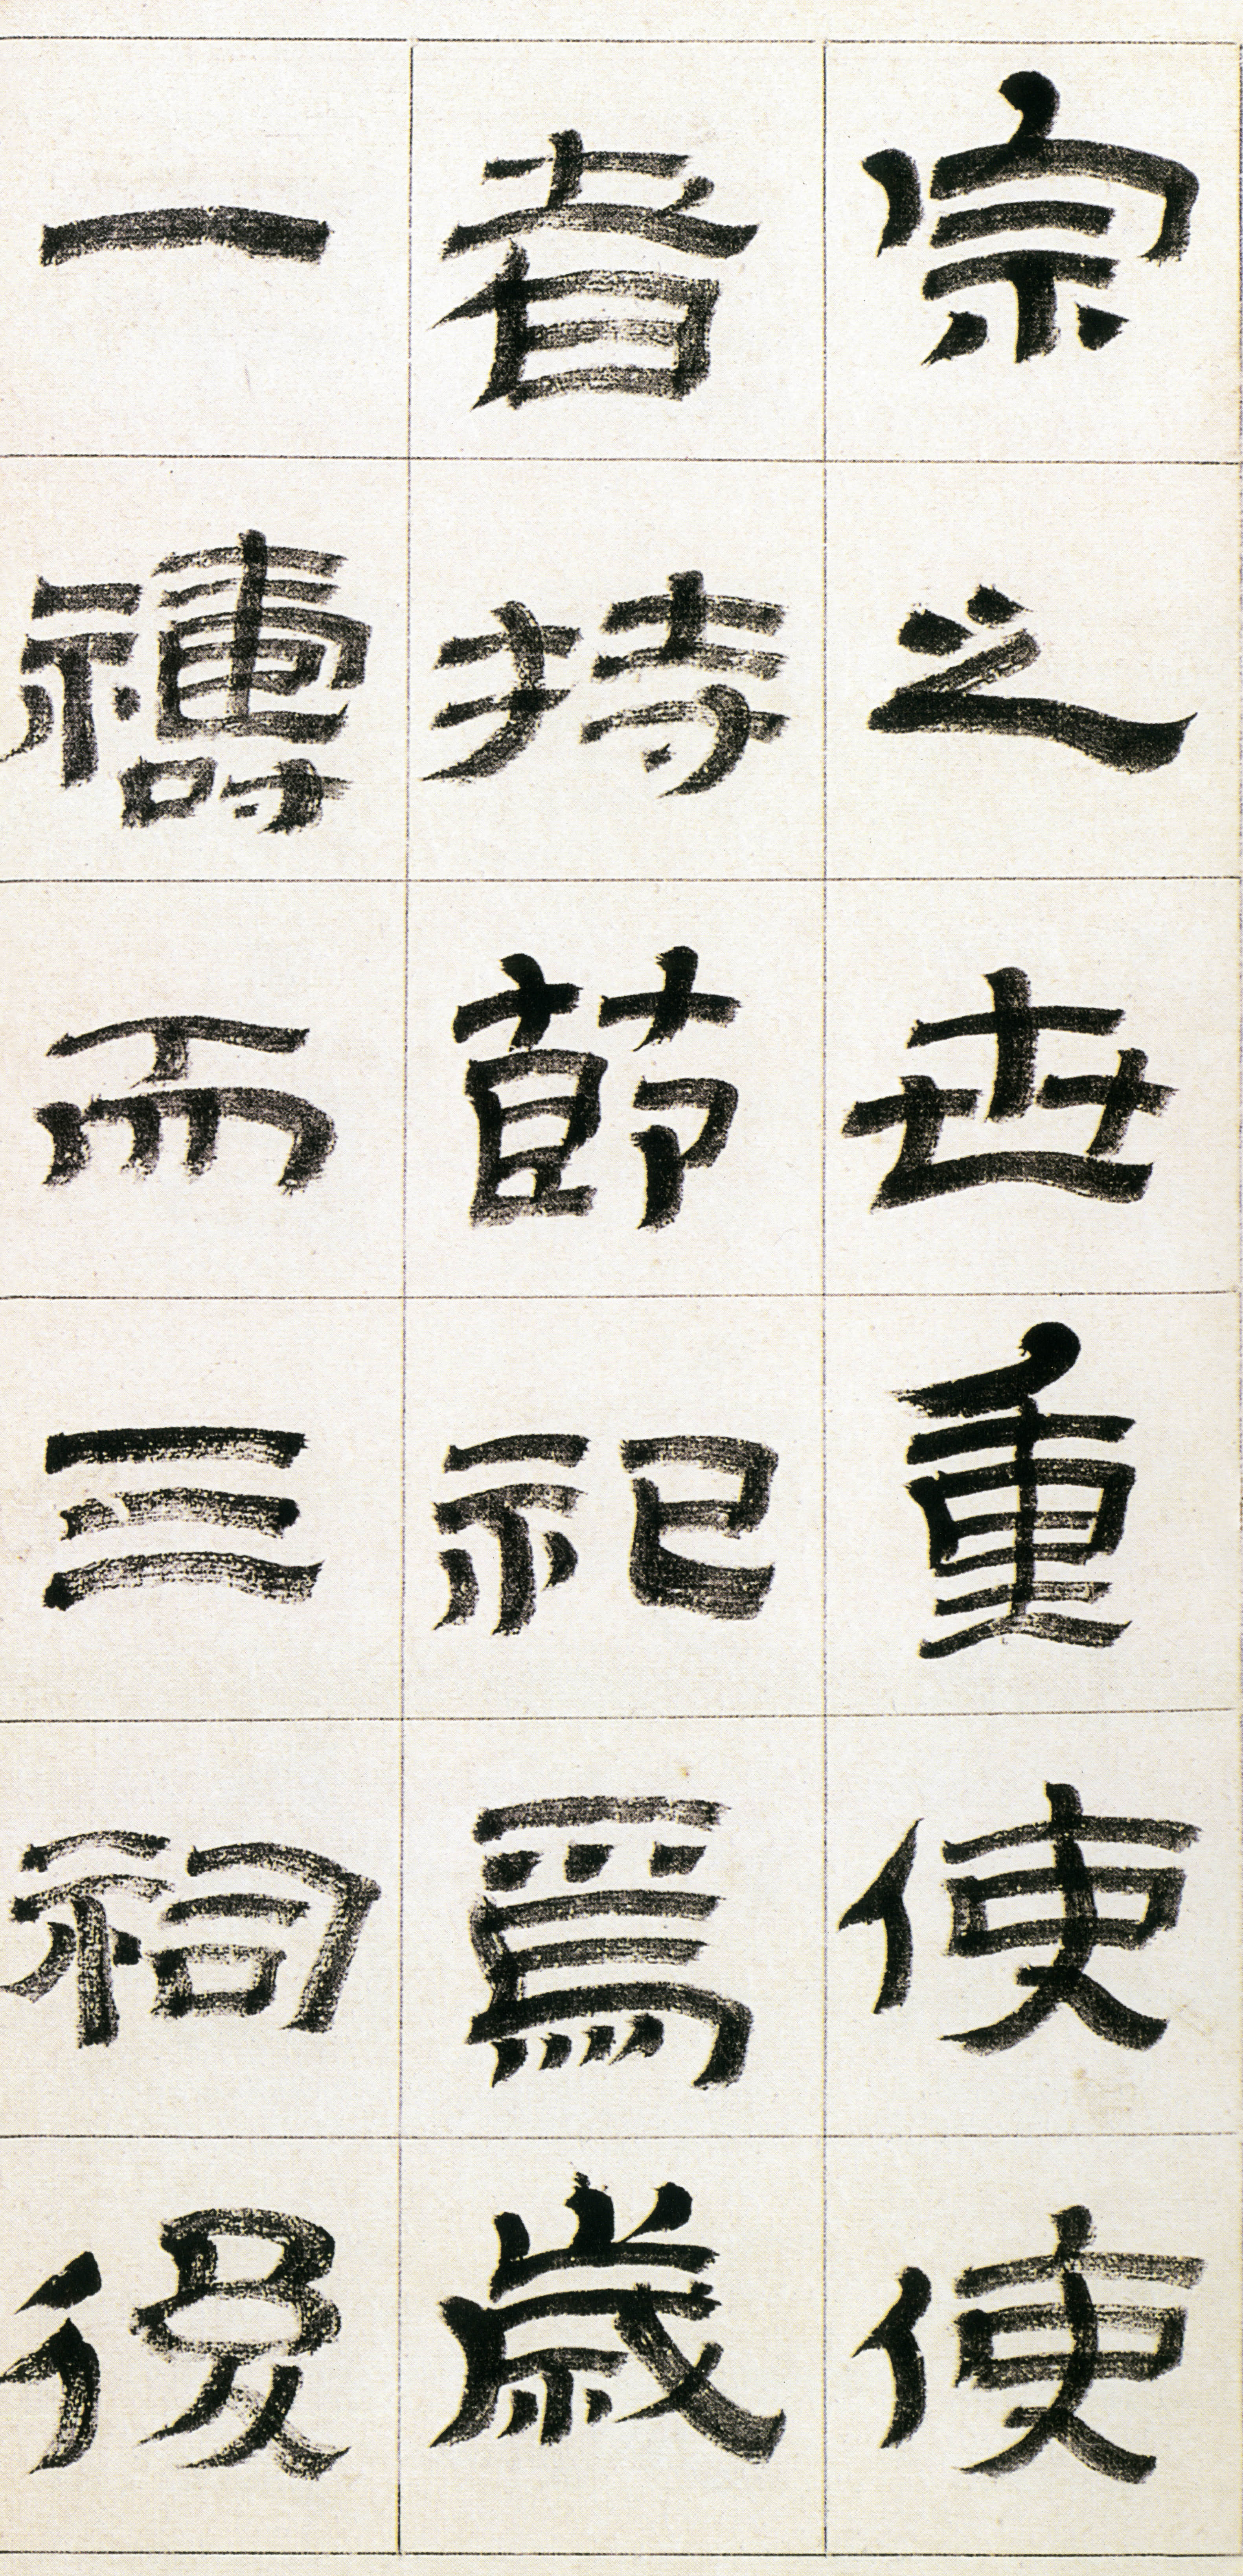 宗之世重使使
者持節祀焉歲
一禱而三祠後